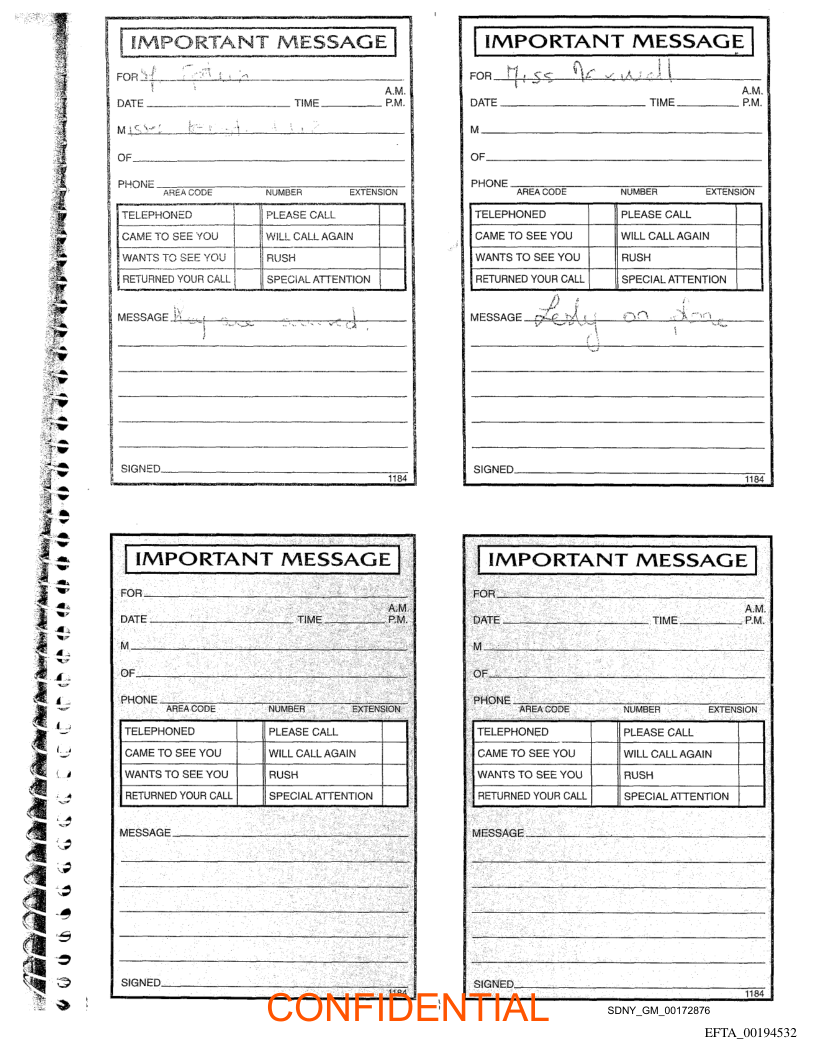 IMPORTANT MESSAGE
FOR
A.M.
DATE TIME P.M.
M
OF
PHONE
AREA CODE NUMBER EXTENSION
TELEPHONED PLEASE CALL
CAME TO SEE YOU WILL CALL AGAIN
WANTS TO SEE YOU RUSH
RETURNED YOUR CALL SPECIAL ATTENTION
MESSAGE
SIGNED
1184
IMPORTANT MESSAGE
FOR Miss Maxwell
A.M.
DATE TIME P.M.
M
OF
PHONE
AREA CODE NUMBER EXTENSION
TELEPHONED PLEASE CALL
CAME TO SEE YOU WILL CALL AGAIN
WANTS TO SEE YOU RUSH
RETURNED YOUR CALL SPECIAL ATTENTION
MESSAGE Lesly on phone
SIGNED
1184
IMPORTANT MESSAGE
FOR
A.M.
DATE TIME P.M.
M
OF
PHONE
AREA CODE NUMBER EXTENSION
TELEPHONED PLEASE CALL
CAME TO SEE YOU WILL CALL AGAIN
WANTS TO SEE YOU RUSH
RETURNED YOUR CALL SPECIAL ATTENTION
MESSAGE
SIGNED
1184
IMPORTANT MESSAGE
FOR
A.M.
DATE TIME P.M.
M
OF
PHONE
AREA CODE NUMBER EXTENSION
TELEPHONED PLEASE CALL
CAME TO SEE YOU WILL CALL AGAIN
WANTS TO SEE YOU RUSH
RETURNED YOUR CALL SPECIAL ATTENTION
MESSAGE
SIGNED
1184
CONFIDENTIAL
SDNY_GM_00172876
EFTA_00194532